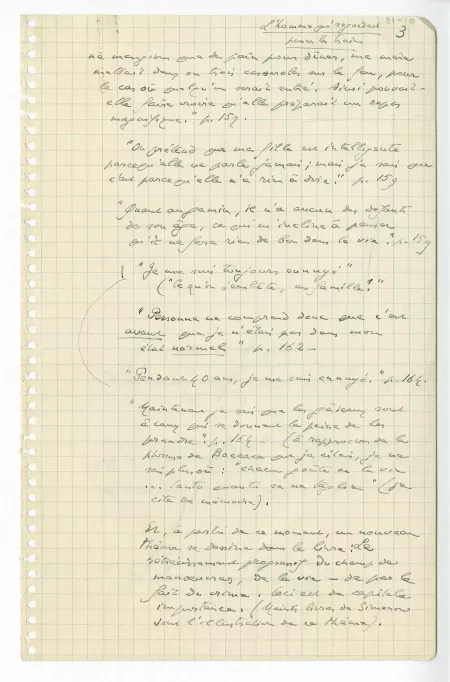 L'homme qui regardait
passer les trains
3
ne mangions que du pain pour dîner, ma mère
mettait deux ou trois casseroles sur le feu, pour
le cas où quelqu'un serait entré. Ainsi pouvait-
elle faire croire qu'elle préparait un repas
magnifique." p. 159.
"On prétend que ma fille est intelligente
parce qu'elle ne parle jamais; moi je sais que
c'est parce qu'elle n'a rien à dire." p. 159
"Quant au gamin, il n'a aucun des défauts
de son âge, ce qui m'incline à penser
qu'il ne fera rien de bon dans la vie." p. 159
"Je me suis toujours ennuyé"
("le qu'on s'embête, en famille!"
"Personne ne comprend donc que c'est
avant que je n'étais pas dans mon
état normal" p. 162 –
"Pendant 40 ans, je me suis ennuyé." p. 164.
"Maintenant je sais que les gâteaux sont
à ceux qui se donnent la peine de les
prendre". p. 164 – (à rapprocher de la
phrase de Boccace que je citais, je ne
sais plus où : "chacun goûte en la vie
... tanto quanto se ne
cite de mémoire).
Et, à partir de ce moment, un nouveau
thème se dessine dans le livre : Le
rétrécissement progressif du champ de
manœuvres, de la vie – de par le
fait du crime. Ceci est de capitale
importance. (Maints livres de Simenon
sont l'illustration de ce thème).